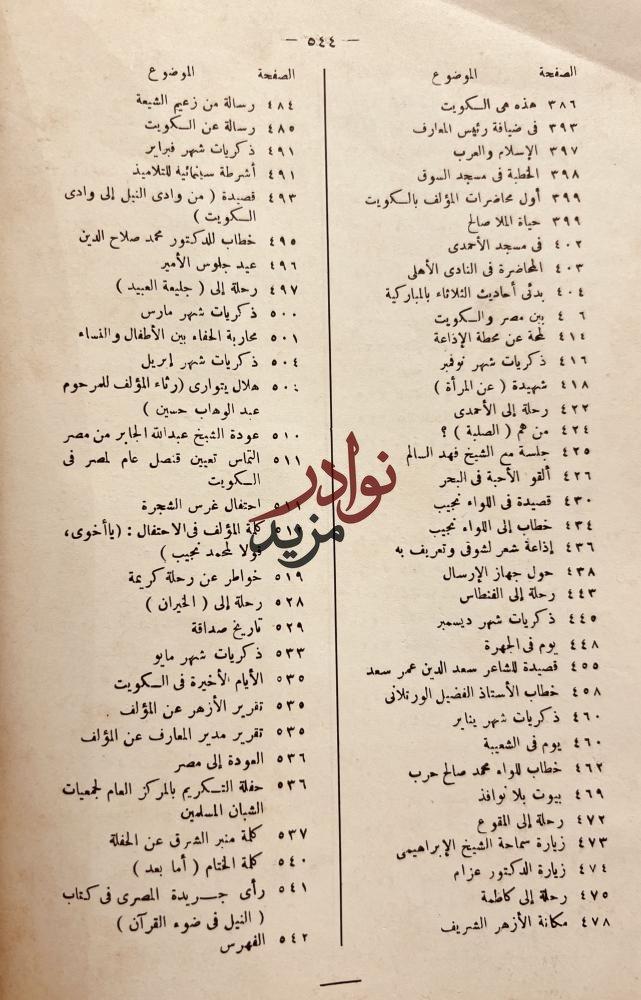 — ٥٤٤ —
الصفحة الموضوع
٣٨٦ هذه هى الكويت
٣٩٣ فى ضيافة رئيس المعارف
٣٩٧ الإسلام والعرب
٣٩٨ الخطبة فى مسجد السوق
٣٩٩ أول محاضرات المؤلف بالكويت
٣٩٩ حياة الملا صالح
٤٠٢ فى مسجد الأحمدى
٤٠٣ المحاضرة فى النادى الأهلى
٤٠٤ بدئى أحاديث الثلاثاء بالمباركية
٤ ٦ بين مصر والكويت
٤١٤ لمحة عن محطة الإذاعة
٤١٦ ذكريات شهر نوفمبر
٤١٨ شهيدة ( عن المرأة )
٤٢٢ رحلة إلى الأحمدى
٤٢٤ من هم ( الصلبة ) ؟
٤٢٥ جلسة مع الشيخ فهد السالم
٤٢٦ ألقو الأحبة فى البحر
٤٣٠ قصيدة فى اللواء نجيب
٤٣٤ خطاب إلى اللواء نجيب
٤٣٦ إذاعة شعر لشوقى وتعريف به
٤٣٨ حول جهاز الإرسال
٤٤٣ رحلة إلى الفنطاس
٤٤٥ ذكريات شهر ديسمبر
٤٤٨ يوم فى الجهرة
٤٥٥ قصيدة للشاعر سعد الدين عمر سعد
٤٥٨ خطاب الأستاذ الفضيل الورتلانى
٤٦٠ ذكريات شهر يناير
٤٦٠ يوم فى الشعيبة
٤٦٢ خطاب للواء محمد صالح حرب
٤٦٩ بيوت بلا نوافذ
٤٧٢ رحلة إلى المقوع
٤٧٣ زيارة سماحة الشيخ الإبراهيمى
٤٧٤ زيارة الدكتور عزام
٤٧٥ رحلة إلى كاظمة
٤٧٨ مكانة الأزهر الشريف
الصفحة الموضوع
٤٨٤ رسالة من زعيم الشيعة
٤٨٥ رسالة عن الكويت
٤٩١ ذكريات شهر فبراير
٤٩١ أشرطة سينمائية للتلاميذ
٤٩٣ قصيدة ( من وادى النيل إلى وادى
الكويت )
٤٩٥ خطاب للدكتور محمد صلاح الدين
٤٩٦ عيد جلوس الأمير
٤٩٧ رحلة إلى ( جليعة العبيد )
٥٠٠ ذكريات شهر مارس
٥٠١ محاربة الحفاء بين الأطفال والنساء
٥٠٤ ذكريات شهر إبريل
هلال يتوارى (رثاء المؤلف للمرحوم
عبد الوهاب حسين )
٥١٠ عودة الشيخ عبدالله الجابر من مصر
٥١١ التماس تعيين قنصل عام لمصر فى
الكويت
٥١١ احتفال غرس الشجرة
كلمة المؤلف فى الاحتفال : (ياأخوى،
قولا لمحمد نجيب )
٥١٩ خواطر عن رحلة كريمة
٥٢٨ رحلة إلى ( الخيران )
٥٢٩ تاريخ صداقة
٥٣٣ ذكريات شهر مايو
٥٣٥ الأيام الأخيرة فى الكويت
٥٣٥ تقرير الأزهر عن المؤلف
٥٣٥ تقرير مدير المعارف عن المؤلف
٥٣٦ العودة إلى مصر
٥٣٦ حفلة التكريم بالمركز العام لجمعيات
الشبان المسلمين
٥٣٧ كلمة منبر الشرق عن الحفلة
٥٤٠ كلمة الختام ( أما بعد )
٥٤١ رأى جريدة المصرى فى كتاب
( النيل فى ضوء القرآن )
٥٤٢ الفهرس
نوادر
مزيد